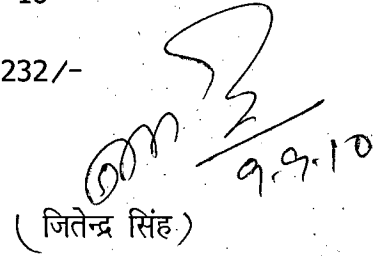 232/-
9.9.10
( जितेन्द्र सिंह )